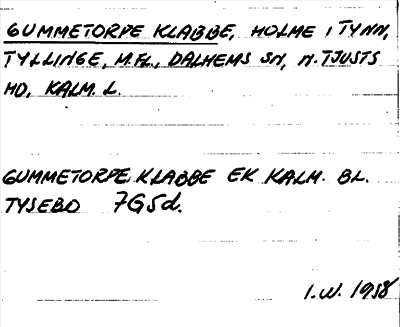 GUMMETORPE KLABBE, HOLME I TYNN,
TYLLINGE, M.FL., DALHEMS SN, N. TJUSTS
HD, KALM. L.
GUMMETORPE KLABBE EK KALM. BL.
TYSEBO 7G5d.
I.W. 1958